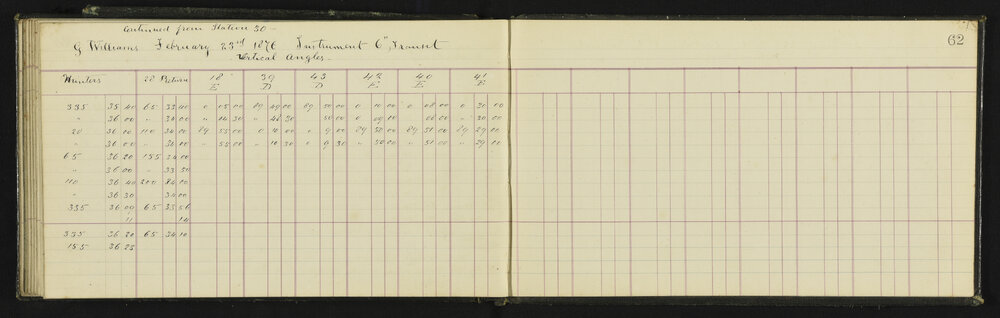 Continued from Station 30
G Williams February 23rd 1876 Instrument 6", Transit
Vertical Angles
62
Hunters 28 Return 18 E 39 D 43 D 42 E 40 E 41 E
335 35 40 65 33 40 0 05 00 89 49 00 89 50 00 0 10 00 0 08 00 0 30 00
" 36 00 " 34 00 " 14 30 " 48 30 50 00 09 10 08 00 " 30 00
20 36 00 110 34 00 89 55 00 0 10 00 0 9 00 89 50 00 89 51 00 89 29 00
" 36 00 " 34 00 " 55 00 " 10 30 0 9 30 " 50 00 " 51 00 " 29 00
65 36 20 155 34 00
" 36 00 " 33 50
110 36 40 200 34 10
" 36 30 34 00
335 36 09 65 33 56
11 14
335 36 20 65 34 10
155 36 25